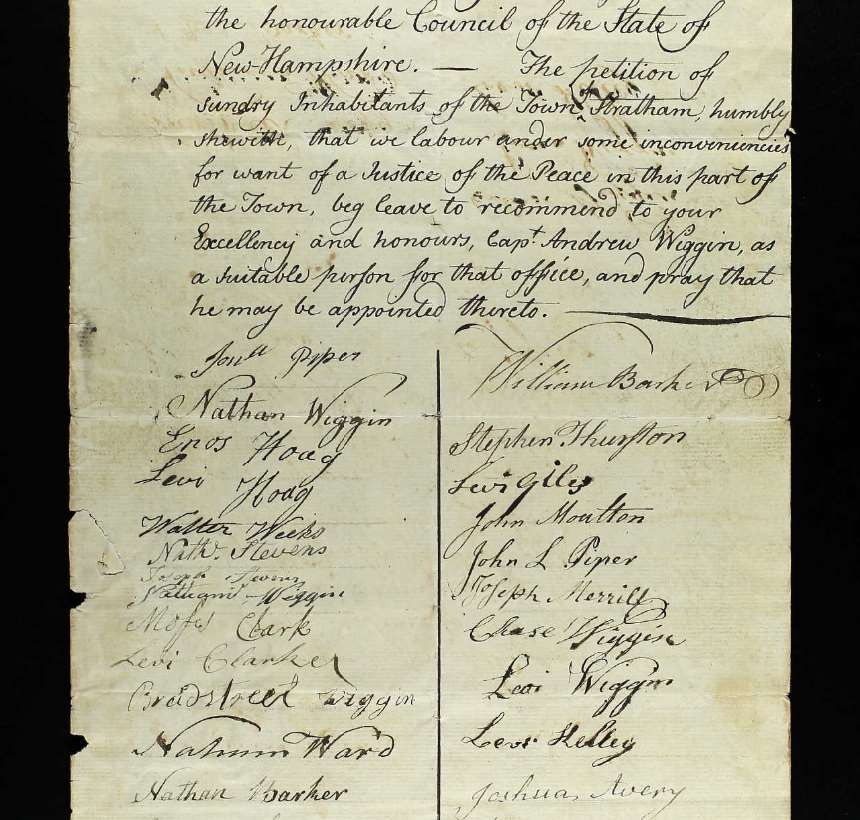 the honourable Council of the State of
New-Hampshire. — The petition of
sundry Inhabitants of the Town of Stratham, humbly
sheweth, that we labour under some inconveniencies
for want of a Justice of the Peace in this part of
the Town, beg leave to recommend to your
Excellency and honours, Capt. Andrew Wiggin, as
a suitable person for that office, and pray that
he may be appointed thereto. —
Piper
Nathan Wiggin
Enos Hoag
Levi Hoag
Walter Weeks
Nathl. Stevens
Joseph Stevens
Wiggin
Moses Clark
Levi Clarke
Bradstreet Wiggin
Nahum Ward
Nathan Barker
William Barker
Stephen Thurston
Levi Giles
John Moulton
John L Piper
Joseph Merrill
Chase Wiggin
Levi Wiggin
Levi Kelley
Joshua Avery